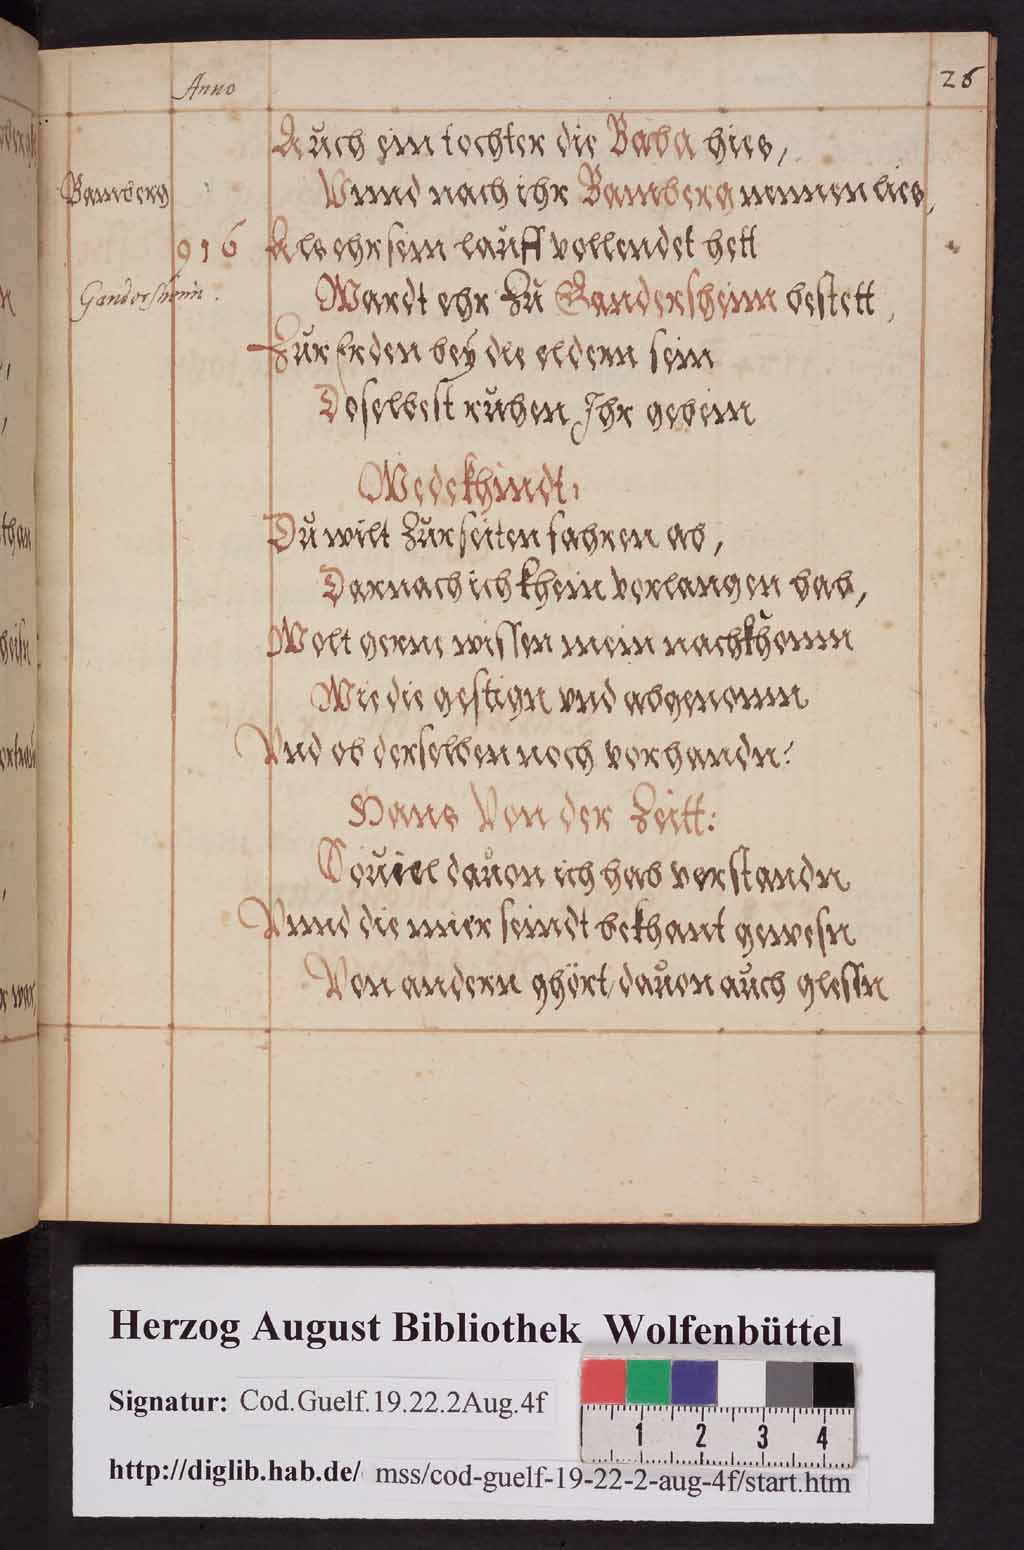 Anno
26
Auch ein tochter die Baba hies,
Bamberg
Vnnd nach ihr Bamberg nennen lies,
916
Als ehr sein lauff vollendet hett
Gandersheim.
Wardt ehr Zu Gandersheim bestett,
Zur Erden bey die eldern sein
Doselbest ruhen Ihr gebein
Wedekhindt:
Du wilt Zur seiten fahren ab,
Darnach ich khein verlangen hab,
Wolt gerne wissen mein nachkhomn
Wie die gestign vnd abgenomn
Vnd ob derselben noch vorhandn:
Hans Von der Zeitt:
Souiel dauon ich hab verstandn
Vnnd die mier seindt bekhant gewesn
Von andern ghört dauon auch glessn
Herzog August Bibliothek Wolfenbüttel
Signatur: Cod.Guelf.19.22.2Aug.4f
1 2 3 4
http://diglib.hab.de/ mss/cod-guelf-19-22-2-aug-4f/start.htm